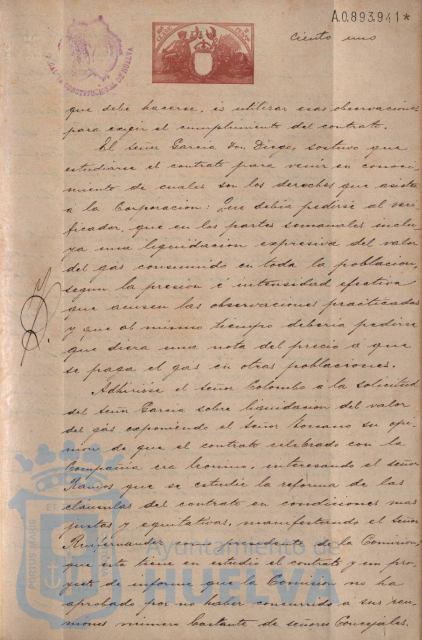 A.0.893.941*
ciento uno
que debe hacerse, es utilizar esas observaciones
para exigir el cumplimiento del contrato.
El Señor García Don Diego, sostuvo que
estudiarse el contrato para venir en conoci-
miento de cuales son los derechos que asisten
a la Corporacion: Que debia pedirse al veri-
ficador, que en los partes semanales inclu-
ya una liquidacion expresiva del valor
del gas consumido en toda la poblacion,
segun la presion é intensidad efectiva
que acusen las observaciones practicadas
y que al mismo tiempo deberia pedirse
que diera una nota del precio a que
se paga el gas en otras poblaciones.
Adhirióse el Señor Colombo á la solicitud
del Señor García sobre liquidacion del valor
del gás exponiendo el Señor Soriano su opi-
nion de que el contrato celebrado con la
Compañia era leonino, interesando el señor
Ramos que se estudie la reforma de las
cláusulas del contrato en condiciones mas
justas y equitativas, manifestando el Señor
como presidente de la Comision,
que esta tiene en estudio el contrato y un pro-
yecto de informe que la Comision no ha
aprobado por no haber concurrido a sus reu-
niones número bastante de señores Concejales.
Ayuntamiento de
HUELVA
PORTUS MARIS